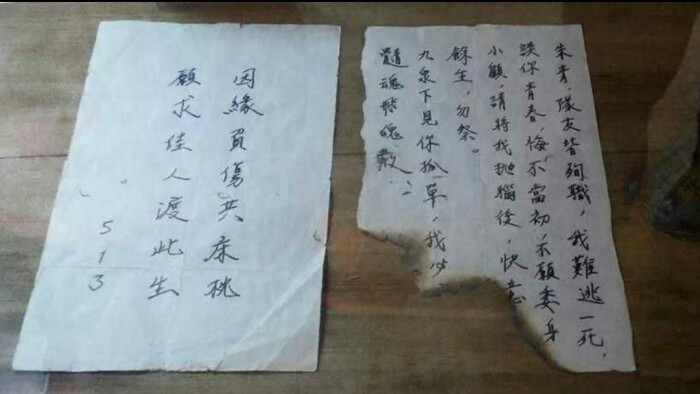 朱青，隊友皆殉職，我難逃一死，
誤你青春，悔不當初，願委身
小顧，請將我拋腦後，快意
餘生，勿祭。
九泉下見你孤單，我必
魂飛魄散。
因緣負傷共床桃
願求佳人渡此生
513